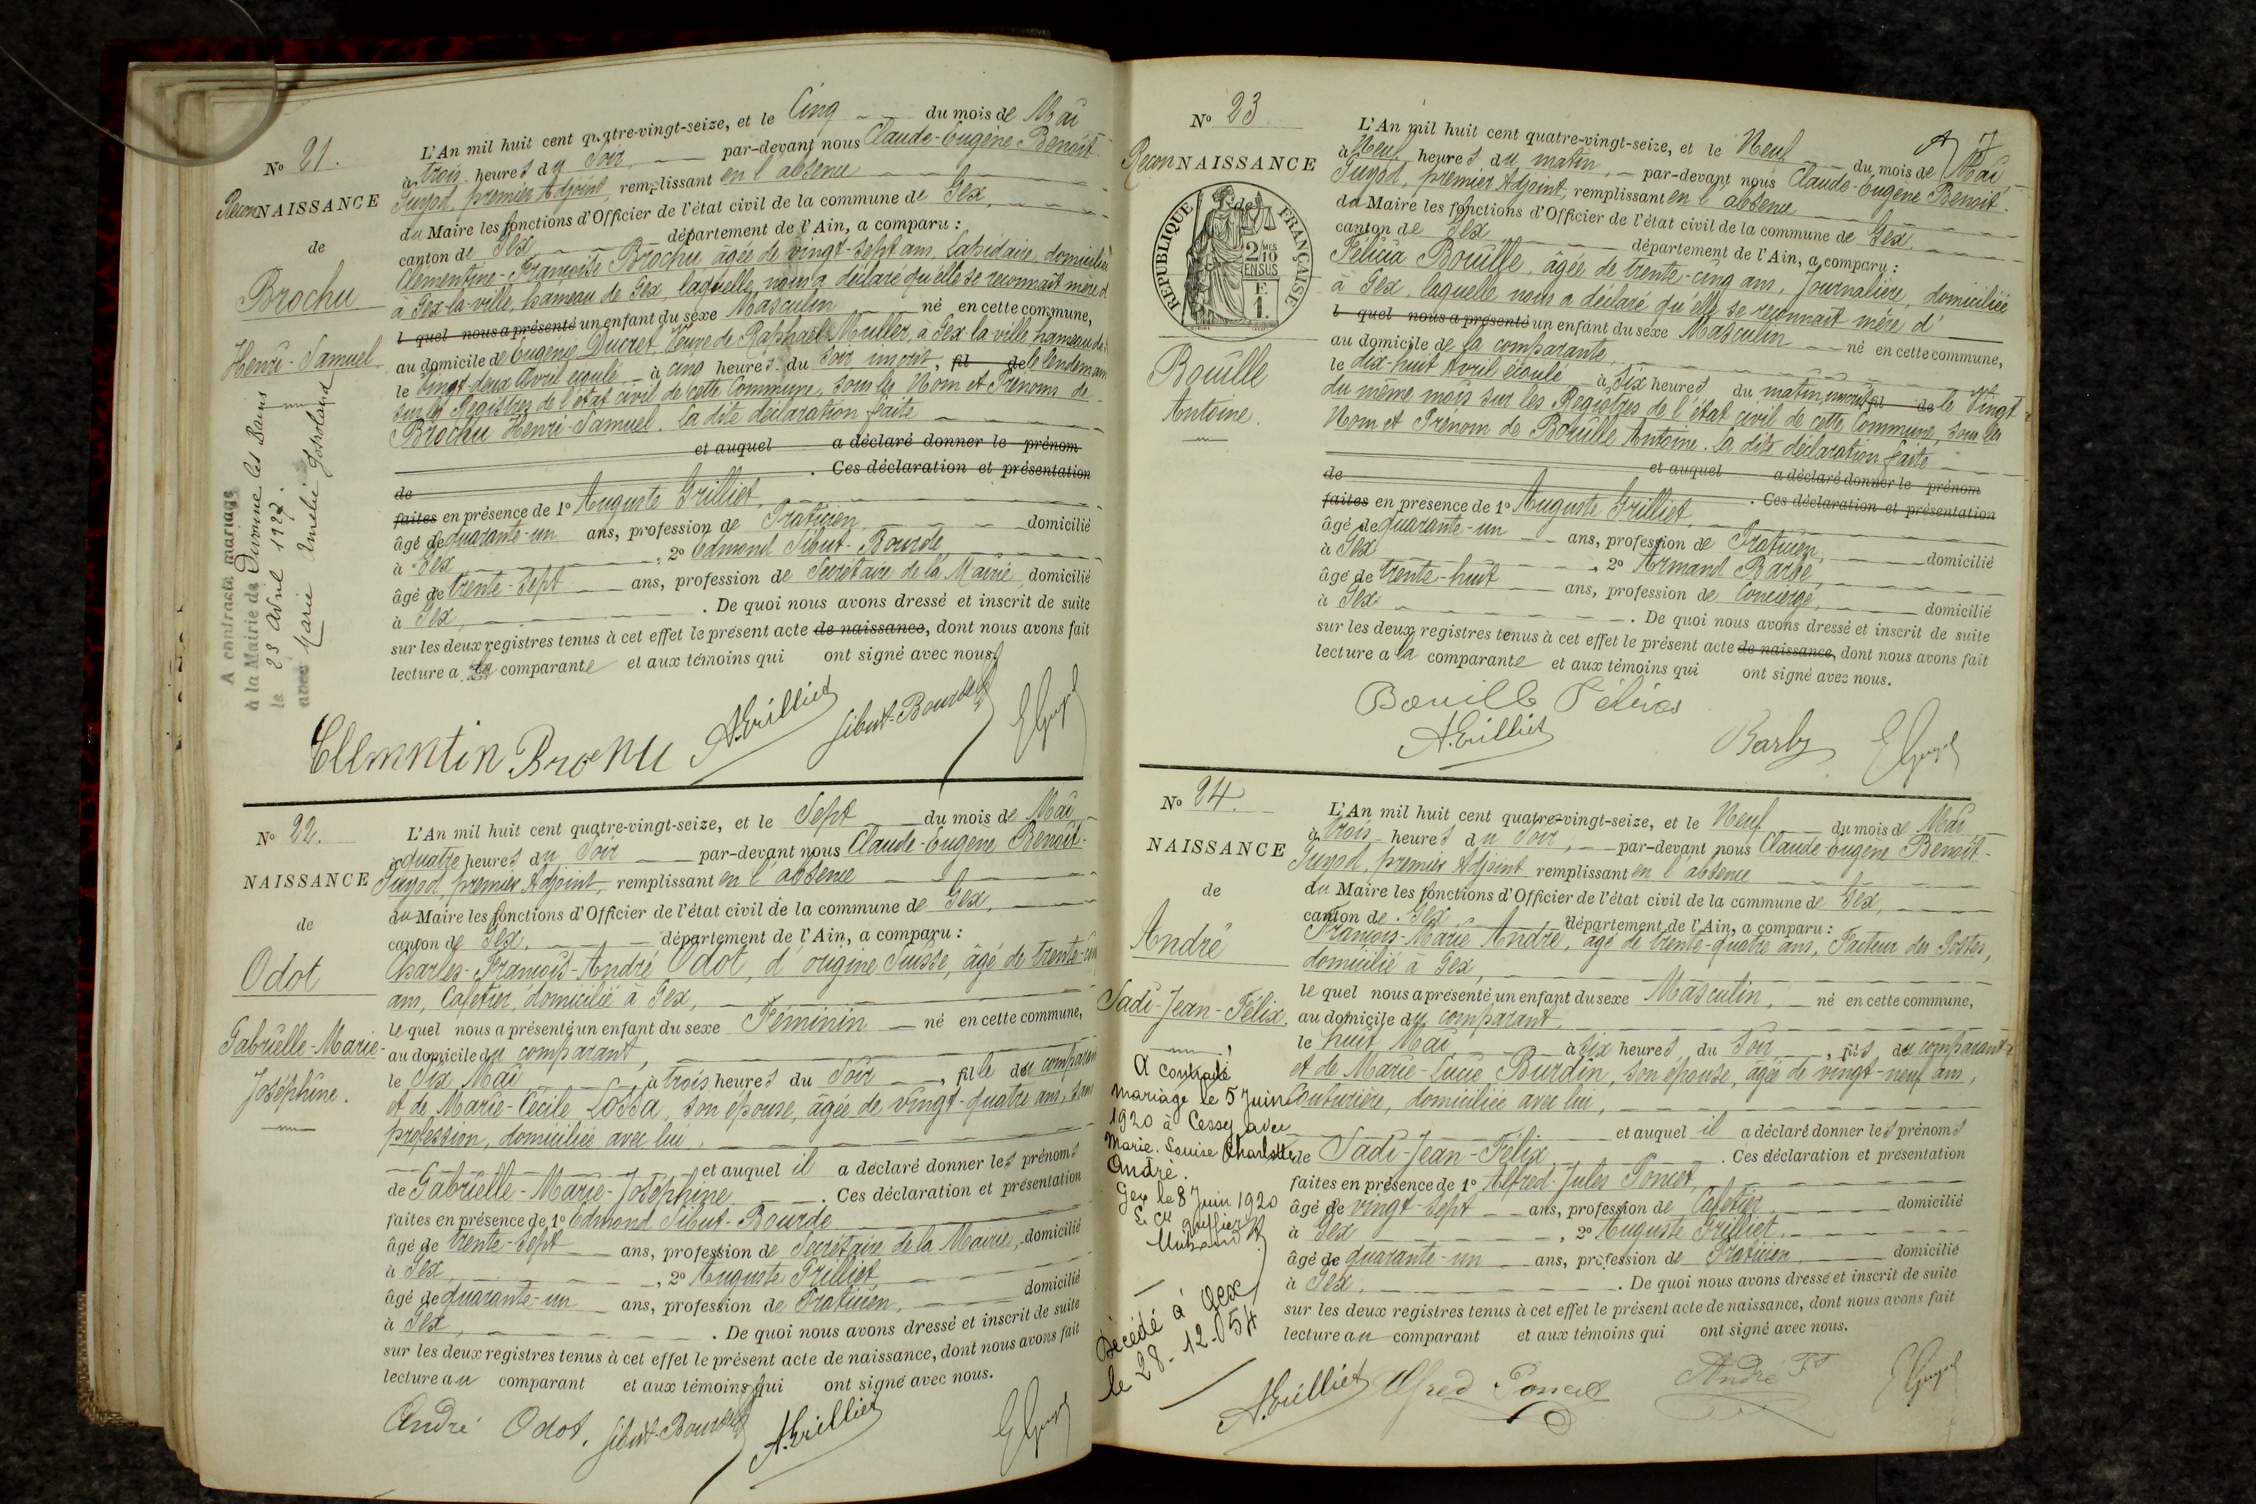 N° 21.
ReconNAISSANCE
de
Brochu
Henri-Samuel
A contracté mariage
à la Mairie de Divonne les Bains
le 23 Avril 1927.
avec Marie Amélie
L'An mil huit cent quatre-vingt-seize, et le Cinq du mois de Mai
à trois heures du Soir, par-devant nous Claude-Eugène Benoît-
Guyod, premier Adjoint, remplissant en l'absence
du Maire les fonctions d'Officier de l'état civil de la commune de Gex,
canton de Gex département de l'Ain, a comparu :
Clémentine-Françoise Brochu âgée de vingt-sept ans, Lapidaire, domiciliée
à Gex-la-ville, hameau de Gex, laquelle nous a déclaré qu'elle se reconnait mère d'
l quel nous a présenté un enfant du sexe Masculin né en cette commune,
au domicile de Eugénie Ducret, Veuve de Raphaël Muller, à Gex la ville hameau de
le vingt-deux Avril écoulé à cinq heures du Soir inscrit, fil de le lendemain
sur les Registres de l'état civil de cette Commune, sous les Nom et Prénoms de
Brochu Henri-Samuel. La dite déclaration faite
et auquel a déclaré donner le prénom
de . Ces déclaration et présentation
faites en présence de 1° Auguste Grilliet,
âgé de quarante-un ans, profession de Praticien, domicilié
à Gex , 2° Edmond Sibut-Bourde
âgé de trente-sept ans, profession de Secrétaire de la Mairie, domicilié
à Gex, . De quoi nous avons dressé et inscrit de suite
sur les deux registres tenus à cet effet le présent acte de naissance, dont nous avons fait
lecture a la comparante et aux témoins qui ont signé avec nous.
Cllmntin Brochu A. Grilliet Sibut-Bourde E Guyod
N° 22.
NAISSANCE
de
Odot
Gabrielle-Marie-
Joséphine.
L'An mil huit cent quatre-vingt-seize, et le Sept du mois de Mai,
à quatre heures du Soir par-devant nous Claude-Eugène Benoît-
Guyod, premier Adjoint, remplissant en l'absence
du Maire les fonctions d'Officier de l'état civil de la commune de Gex,
canton de Gex, département de l'Ain, a comparu :
Charles-François-André Odot, d'origine Suisse, âgé de trente-cinq
ans, Cafetier, domicilié à Gex,
le quel nous a présenté un enfant du sexe Féminin né en cette commune,
au domicile du comparant,
le Six Mai, à trois heures du Soir , fille du comparant
et de Marie-Cécile Lossa, son épouse, âgée de vingt-quatre ans, sans
profession, domiciliée avec lui.
et auquel il a déclaré donner les prénoms
de Gabrielle-Marie-Joséphine . Ces déclaration et présentation
faites en présence de 1° Edmond Sibut-Bourde
âgé de trente-sept ans, profession de Secrétaire de la Mairie, domicilié
à Gex , 2° Auguste Grilliet,
âgé de quarante-un ans, profession de Praticien, domicilié
à Gex, . De quoi nous avons dressé et inscrit de suite
sur les deux registres tenus à cet effet le présent acte de naissance, dont nous avons fait
lecture au comparant et aux témoins qui ont signé avec nous.
André Odot. Sibut-Bourde A. Grilliet E Guyod
N° 23
ReconNAISSANCE
de
RÉPUBLIQUE FRANÇAISE
2/10 EN SUS
F. 1.
Bouille
Antoine.
L'An mil huit cent quatre-vingt-seize, et le Neuf du mois de Mai,
à Neuf heures du matin, par-devant nous Claude-Eugène Benoît-
Guyod, premier Adjoint, remplissant en l'absence
du Maire les fonctions d'Officier de l'état civil de la commune de Gex
canton de Gex département de l'Ain, a comparu :
Félicia Bouille, âgée de trente-cinq ans, Journalière, domiciliée
à Gex, laquelle nous a déclaré qu'elle se reconnait mère d'
l quel nous a présenté un enfant du sexe Masculin né en cette commune,
au domicile de la comparante,
le dix-huit Avril écoulé à Six heures du matin, inscrit fil de le Vingt
du même mois sur les Registres de l'état civil de cette Commune, sous les
Nom et Prénom de Bouille Antoine. La dite déclaration faite
et auquel a déclaré donner le prénom
de . Ces déclaration et présentation
faites en présence de 1° Auguste Grilliet,
âgé de quarante-un ans, profession de Praticien domicilié
à Gex , 2° Armand Barbé,
âgé de trente-huit ans, profession de Concierge, domicilié
à Gex . De quoi nous avons dressé et inscrit de suite
sur les deux registres tenus à cet effet le présent acte de naissance, dont nous avons fait
lecture a la comparante et aux témoins qui ont signé avec nous.
Bouille
A. Grilliet Barby E Guyod
N° 24.
NAISSANCE
de
André
Sadi-Jean-Félix.
A contracté
mariage le 5 Juin
1920 à Cessy avec
Marie-Louise Charlotte
André.
Gex le 8 Juin 1920
Décédé à Gex
le 28-12-54
L'An mil huit cent quatre-vingt-seize, et le Neuf du mois de Mai
à trois heures du Soir, par-devant nous Claude-Eugène Benoît-
Guyod, premier Adjoint remplissant en l'absence
du Maire les fonctions d'Officier de l'état civil de la commune de Gex,
canton de Gex, département de l'Ain, a comparu :
François-Marie André, âgé de trente-quatre ans, Facteur des Postes,
domicilié à Gex,
le quel nous a présenté un enfant du sexe Masculin, né en cette commune,
au domicile du comparant,
le huit Mai à six heures du Soir , fils du comparant
et de Marie-Lucie Burdin, son épouse, âgée de vingt-neuf ans,
Couturière, domiciliée avec lui,
et auquel il a déclaré donner les prénoms
de Sadi-Jean-Félix . Ces déclaration et présentation
faites en présence de 1° Alfred-Jules Poncet,
âgé de vingt-sept ans, profession de Cafetier, domicilié
à Gex , 2° Auguste Grilliet,
âgé de quarante-un ans, profession de Praticien domicilié
à Gex, . De quoi nous avons dressé et inscrit de suite
sur les deux registres tenus à cet effet le présent acte de naissance, dont nous avons fait
lecture au comparant et aux témoins qui ont signé avec nous.
A. Grilliet Alfred Poncet André Fs E Guyod